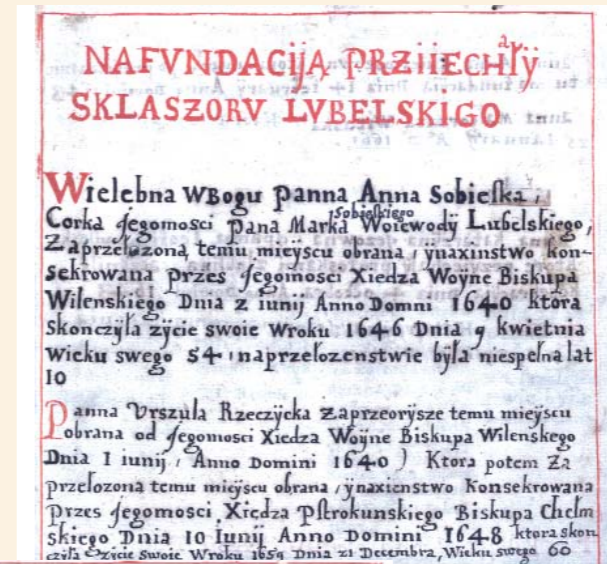 NAFVNDACijĄ PRZIIECHAłÿ
SKLASZORV LVBELSKIGO
Wielebna WBogu Panna Anna Sobieska,
Corka Jegomosci Pana Marka Sobieskiego Woiewodÿ Lubelskiego,
Zaprzełozoną temu mieÿscu obrana, ÿnaxinstwo kon-
sekrowana przes Jegomosci Xiedza Woÿne Biskupa
Wilenskiego Dnia 2 iunij Anno Domni 1640 ktora
skonczÿła zÿcie swoie Wroku 1646 Dnia 9 kwietnia
Wieku swego 54 naprzełozenstwie bÿła niespełna lat
10
Panna Vrszula Rzeczÿcka Zaprzeorÿsze temu mieÿscu
obrana od Jegomosci Xiedza Woÿne Biskupa Wilenskego
Dnia 1 iunij, Anno Domini 1640) Ktora potem Za
przełozoną temu mieÿscu obrana, ÿnaxienstwo Konsekrowana
Przes Jegomosci, Xiedza Pstrokunskiego Biskupa Chełm
skiego Dnia 10 Iunij Anno Domini 1648 ktora skon
czÿła Zÿcie swoie Wroku 1659 Dnia 21 Decembra, Wieku swego 60